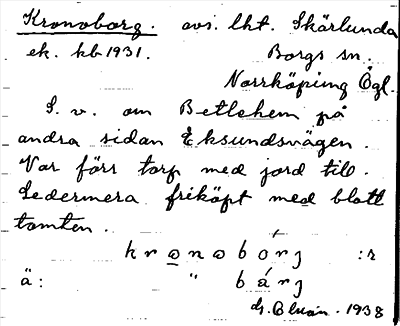 Kronoborg. avs. lht. Skärlunda
ek. kb 1931. Borgs sn.
Norrköping Ögl.
S. v. om Betlehem på
andra sidan Eksundsvägen.
Var förr torp med jord till.
Sedermera friköpt med blott
tomten.
kronobórj :r
ä: " bárj
1938